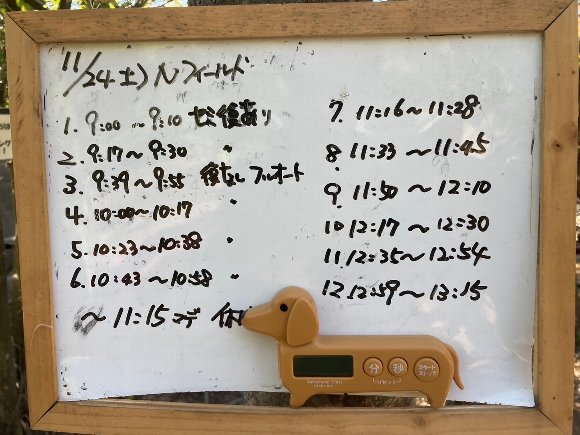 11/24土) Nフィールド
1. 9:00 〜 9:10 セミ後あり
2. 9:17 〜 9:30 〃
3. 9:39 〜 9:55 後なし フルオート
4. 10:00〜10:17 〃
5. 10:23〜10:38 〃
6. 10:43 〜 10:58 〃
〜 11:15まで
7. 11:16〜11:28
8 11:33 〜 11:45
9 11:50 〜 12:10
10 12:17 〜 12:30
11 12:35〜 12:54
12 12:59 〜 13:15
分 秒 スタート ストップ
リセット